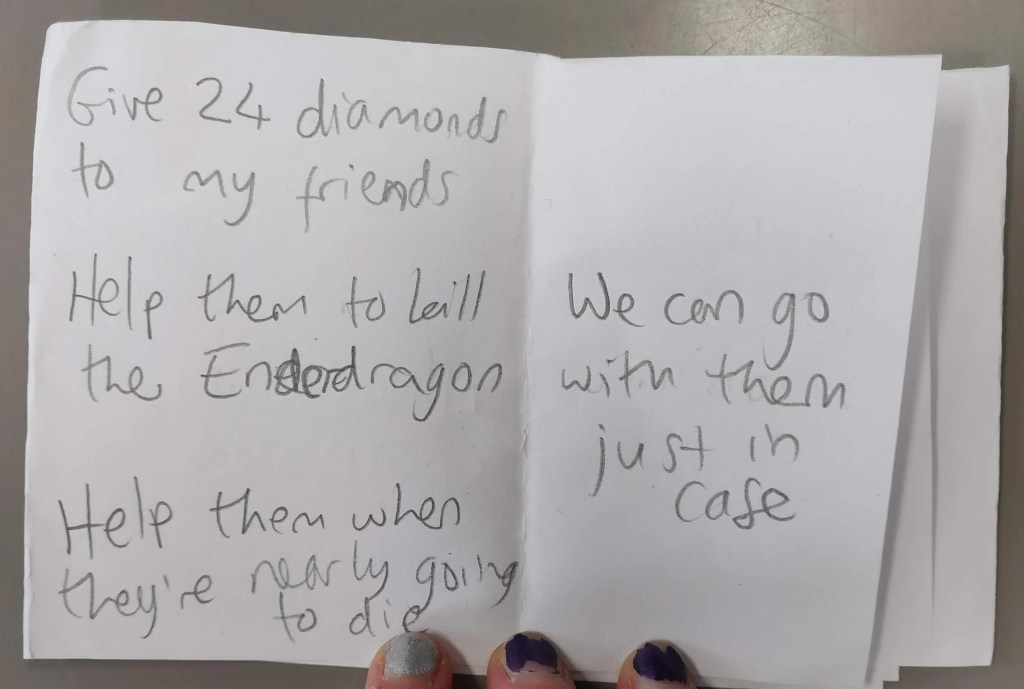 Give 24 diamonds
to my friends
Help them to kill
the Enderdragon
Help them when
they're nearly going
to die
We can go
with them
just in
case